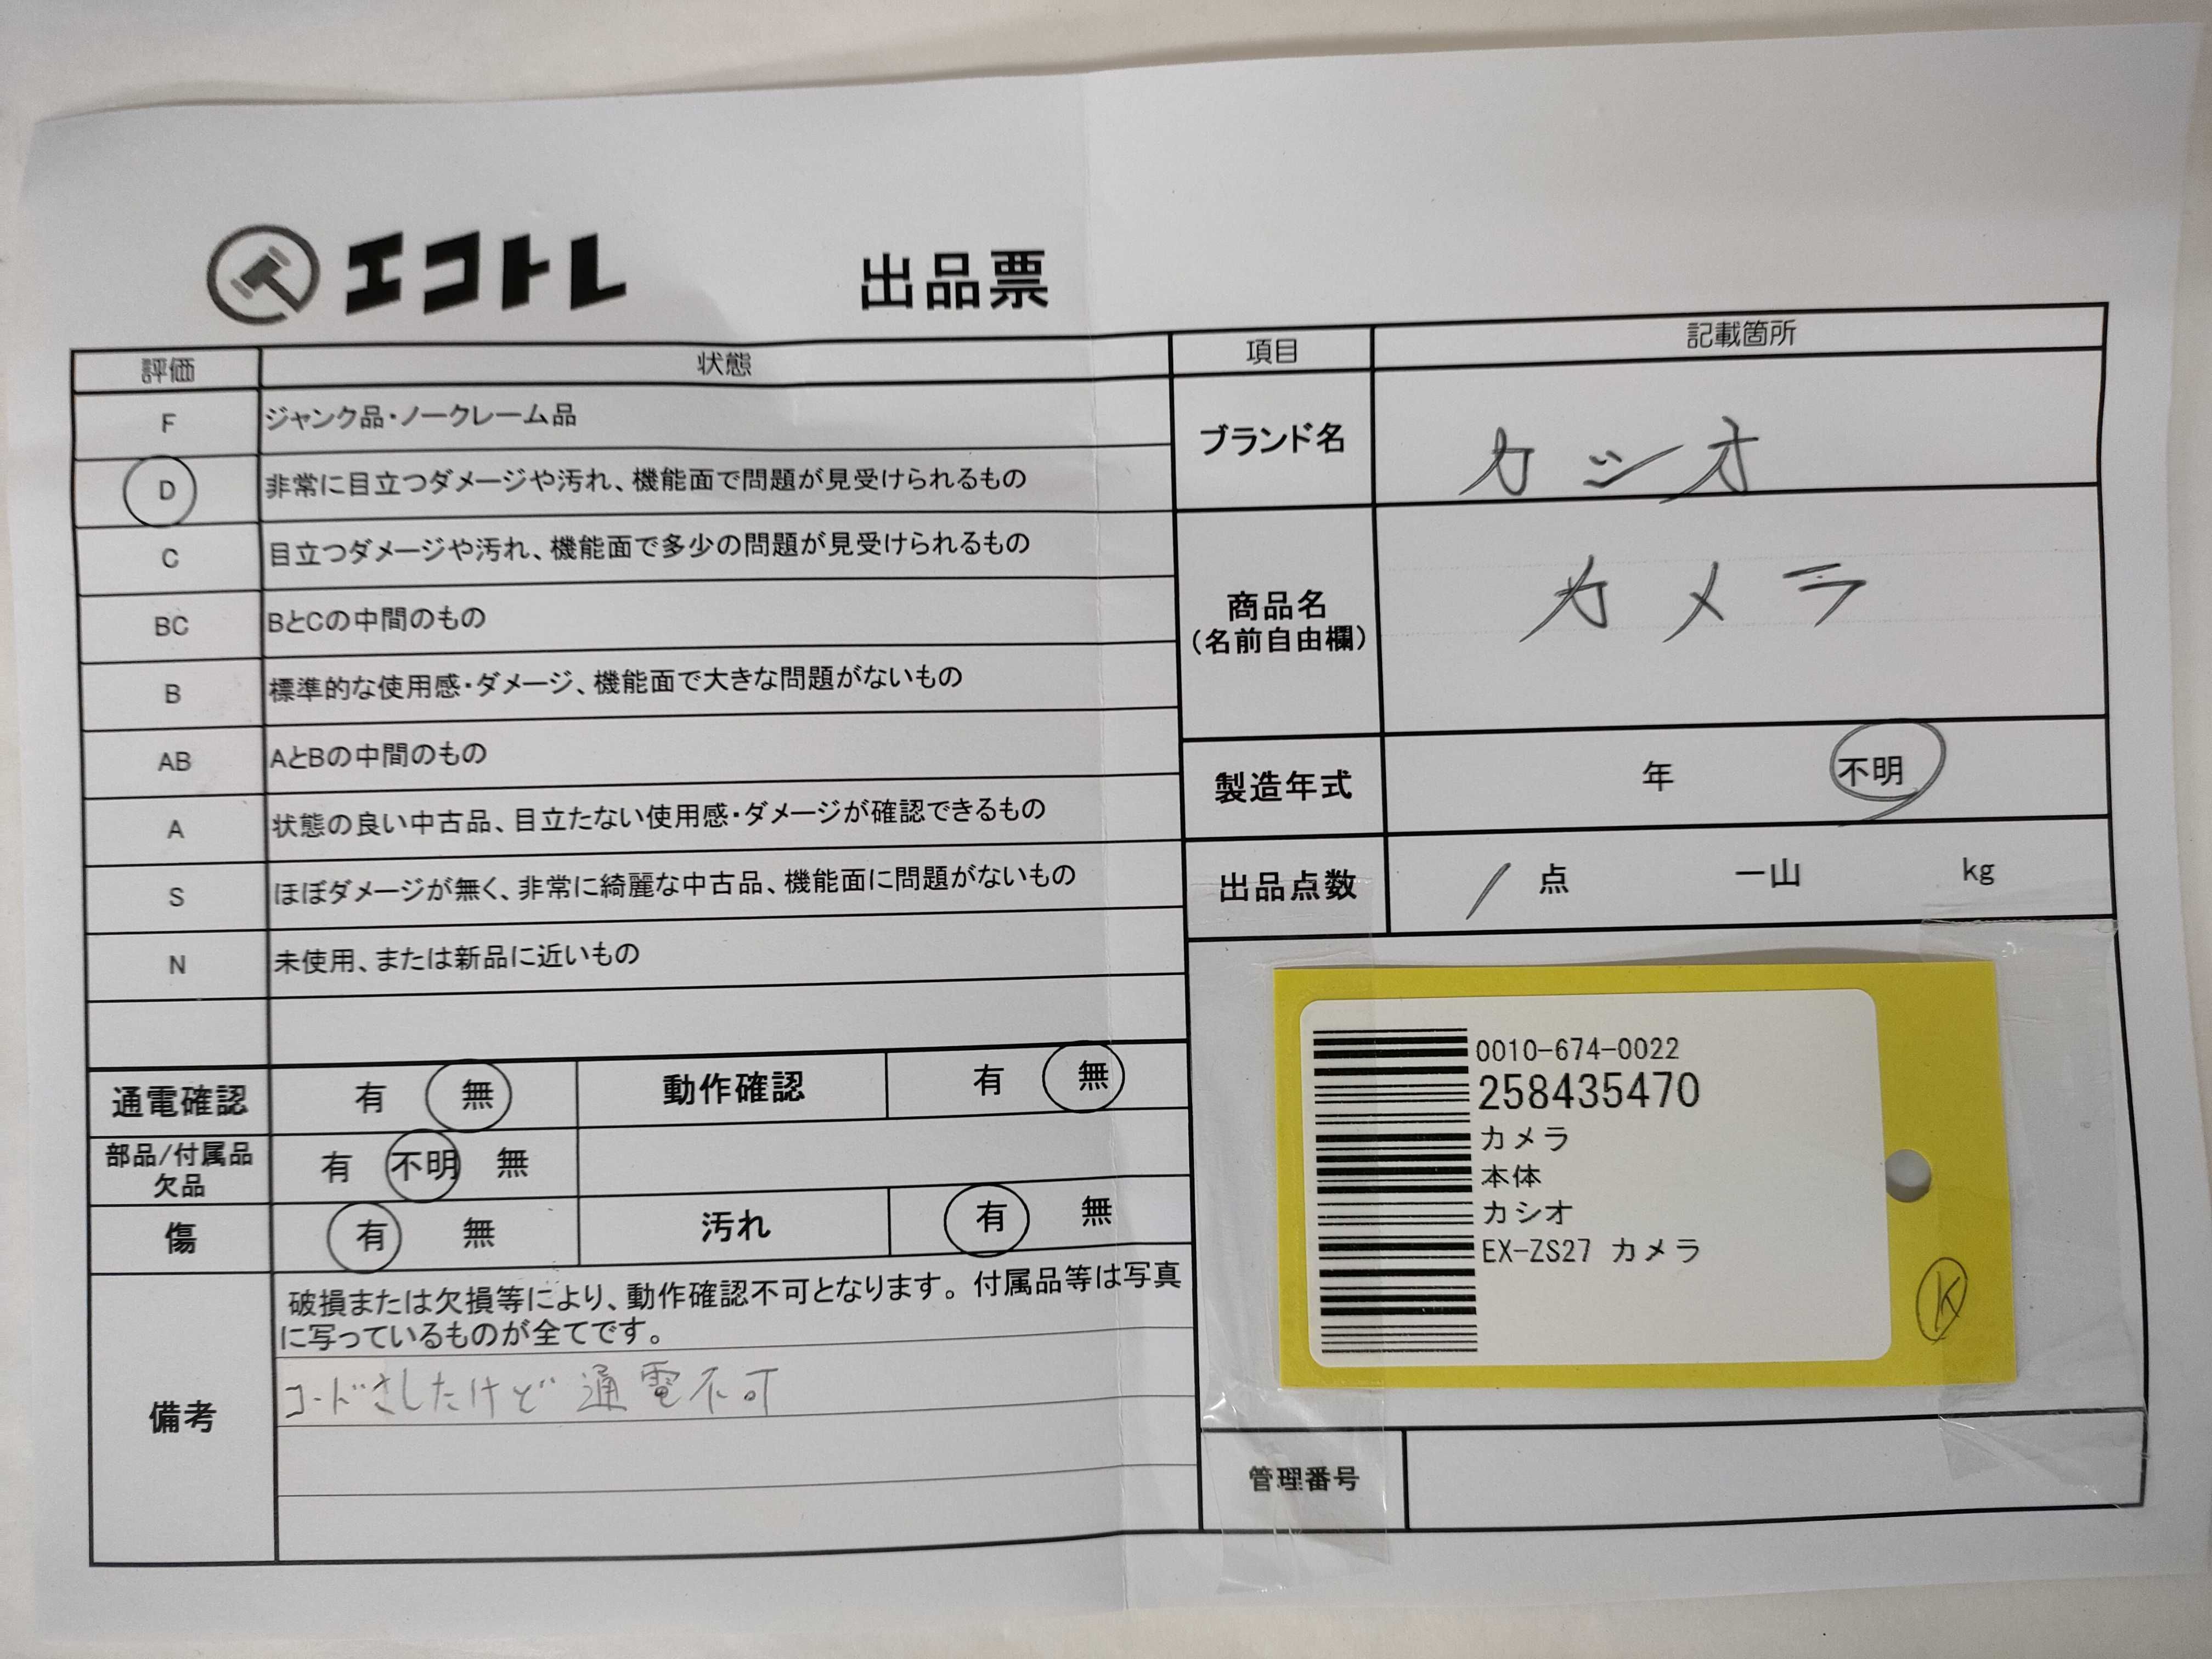 エコトレ
出品票
評価 状態
F ジャンク品・ノークレーム品
D 非常に目立つダメージや汚れ、機能面で問題が見受けられるもの
C 目立つダメージや汚れ、機能面で多少の問題が見受けられるもの
BC BとCの中間のもの
B 標準的な使用感・ダメージ、機能面で大きな問題がないもの
AB AとBの中間のもの
A 状態の良い中古品、目立たない使用感・ダメージが確認できるもの
S ほぼダメージが無く、非常に綺麗な中古品、機能面に問題がないもの
N 未使用、または新品に近いもの
通電確認 有 無 動作確認 有 無
部品/付属品
欠品 有 不明 無
傷 有 無 汚れ 有 無
備考
破損または欠損等により、動作確認不可となります。付属品等は写真
に写っているものが全てです。
コードさしたけど通電不可
項目 記載箇所
ブランド名 カシオ
商品名
(名前自由欄)
カメラ
製造年式 年 不明
出品点数 1 点 一山 kg
0010-674-0022
258435470
カメラ
本体
カシオ
EX-ZS27 カメラ
K
管理番号